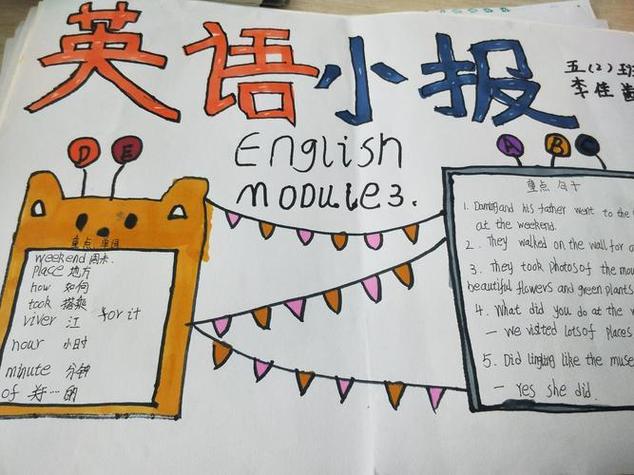 英语小报
五(2)班
李佳
English
Module3.
D E
A B C
重点 单词
weekend 周末.
place 地方
how 如何
took 搭乘
viver 江
for it
hour 小时
minute 分钟
of 关…的
重点 句子
1. Daming and his father went to the
at the weekend.
2. They walked on the wall for a
3. They took photos of the mou
beautiful flowers and green plants
4. What did you do at the w
— we visited lots of places
5. Did lingling like the muse
— Yes she did.